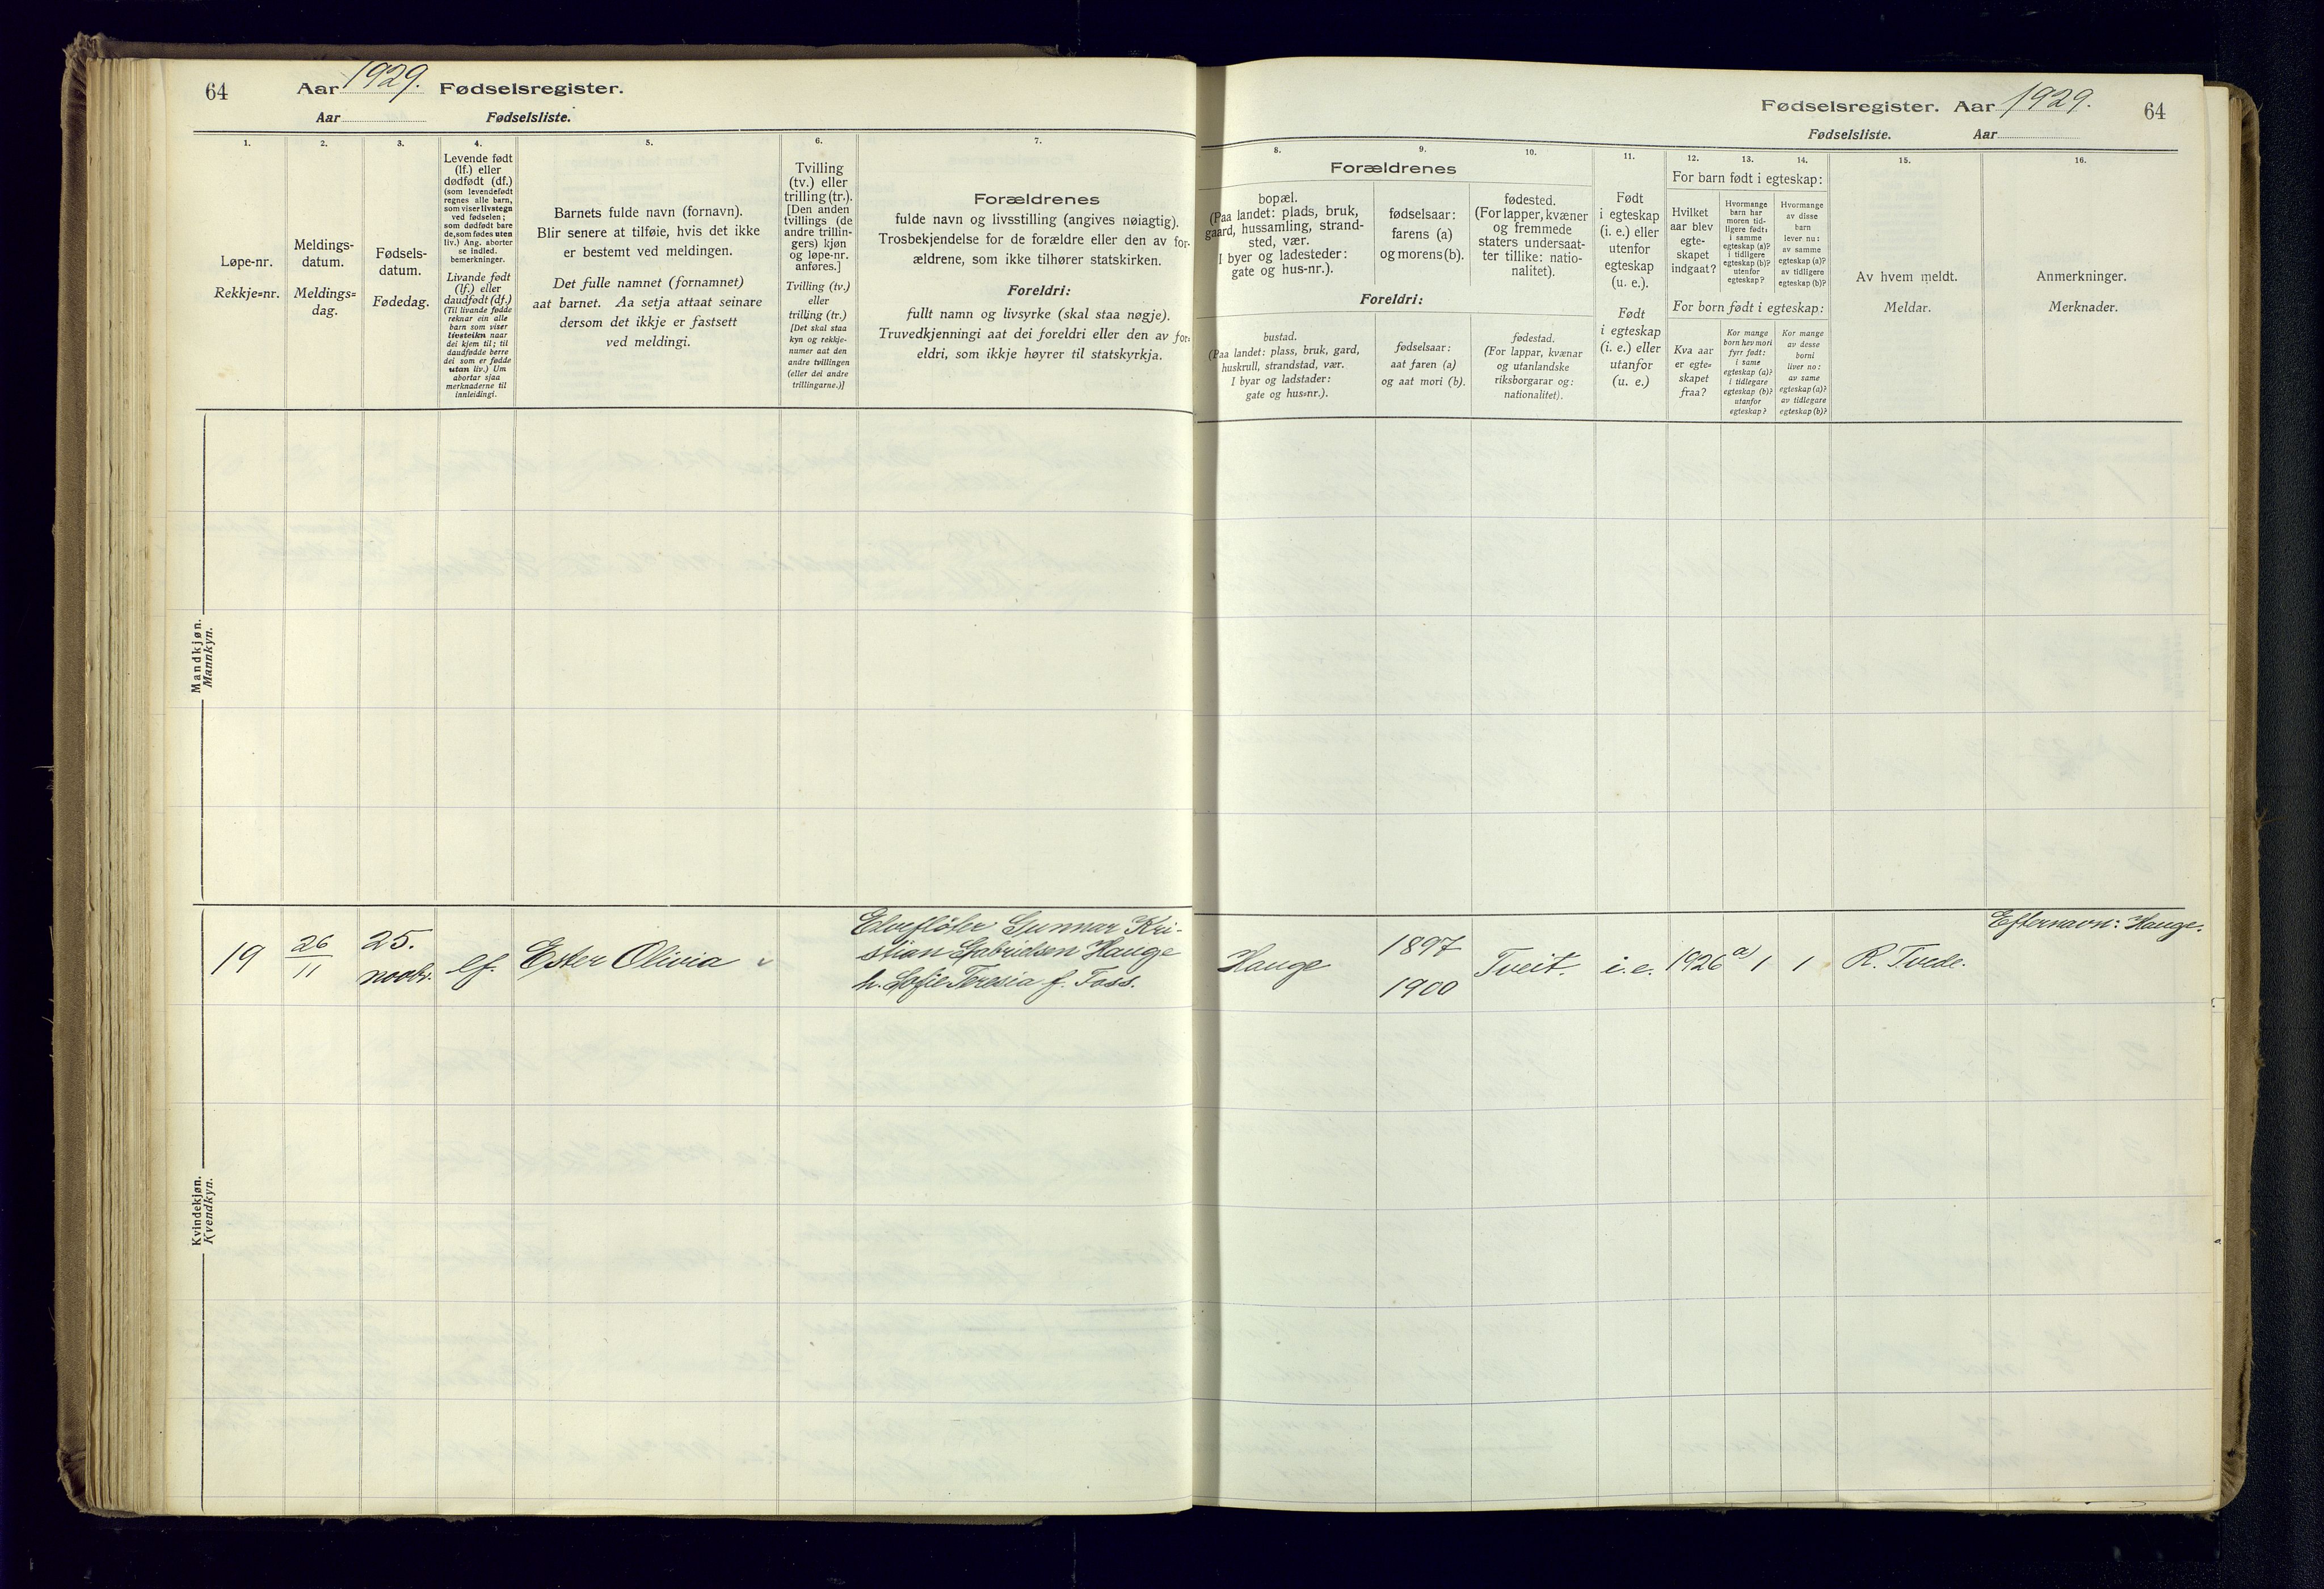 64
Aar 1929. Fødselsregister.
Aar Fødselsliste.
1.
Løpe-nr.
Rekkje=nr.
2.
Meldings-
datum.
Meldings=
dag.
3.
Fødsels-
datum.
Fødedag.
4.
Levende født
(lf.) eller
dødfødt (df.)
(som levendefødt
regnes alle barn,
som viser livstegn
ved fødselen;
som dødfødt bare
de, som fødes uten
liv.) Ang. aborter
se indled.
bemerkninger.
Livande født
(lf.) eller
daudfødt (df.)
(Til livande fødde
reknar ein alle
barn som viser
livsteikn naar
dei kjem til; til
daudfødde berre
dei som er fødde
utan liv.) Um
abortar sjaa
merknaderne til
innleidingi.
5.
Barnets fulde navn (fornavn).
Blir senere at tilføie, hvis det ikke
er bestemt ved meldingen.
Det fulle namnet (fornamnet)
aat barnet. Aa setja attaat seinare
dersom det ikkje er fastsett
ved meldingi.
6.
Tvilling
(tv.) eller
trilling (tr.).
[Den anden
tvillings (de
andre trillin-
gers) kjøn
og løpe-nr.
anføres.]
Tvilling (tv.)
eller
trilling (tr.)
[Det skal staa
kyn og rekkje-
numer aat den
andre tvillingen
(eller dei andre
trillingarne.)]
7.
Forældrenes
fulde navn og livsstilling (angives nøiagtig).
Trosbekjendelse for de forældre eller den av for-
ældrene, som ikke tilhører statskirken.
Foreldri:
fullt namn og livsyrke (skal staa nøgje).
Truvedkjenningi aat dei foreldri eller den av for-
eldri, som ikkje høyrer til statskyrkja.
Mandkjøn.
Mannkyn.
19
26
11
25.
novbr.
lf.
Ester Olivia
Elvefløter Gunnar Kri-
stian Gabrielsen Hauge
h. Sofie Teresia f. Foss.
Kvindekjøn.
Kvendkyn.
Fødselsregister. Aar 1929.
64
Fødselsliste. Aar
Forældrenes
8.
bopæl.
(Paa landet: plads, bruk,
gaard, hussamling, strand-
sted, vær.
I byer og ladesteder:
gate og hus-nr.).
9.
fødselsaar:
farens (a)
og morens (b).
10.
fødested.
(For lapper, kvæner
og fremmede
staters undersaat-
ter tillike: natio-
nalitet).
Foreldri:
bustad.
(Paa landet: plass, bruk, gard,
huskrull, strandstad, vær.
I byar og ladstader:
gate og hus=nr.).
fødselsaar:
aat faren (a)
og aat mori (b).
fødestad.
(For lappar, kvænar
og utanlandske
riksborgarar og:
nationalitet).
11.
Født
i egteskap
(i. e.) eller
utenfor
egteskap
(u. e.).
Født
i egteskap
(i. e.) eller
utanfor
(u. e.)
For barn født i egteskap:
12.
Hvilket
aar blev
egte-
skapet
indgaat?
13.
Hvormange
barn har
moren tid-
ligere født:
i samme
egteskap (a)?
i tidligere
egteskap (b)?
utenfor
egteskap?
14.
Hvormange
av disse
barn
lever nu:
av samme
egteskap (a)?
av tidligere
egteskap (b)?
For born født i egteskap:
Kva aar
er egte=
skapet
fraa?
Kor mange
born hev mori
fyrr født:
i same
egteskap (a)?
i tidlegare
egteskap (b)?
utanfor
egteskap?
Kor mange
av desse
borni
liver no:
av same
egteskap (a)?
av tidlegare
egteskap (b)?
15.
Av hvem meldt.
Meldar.
16.
Anmerkninger.
Merknader.
Hauge
1897
1900
Tveit.
i. e.
1926
a) 1
1
R. Tvede.
Efternavn: Hauge.